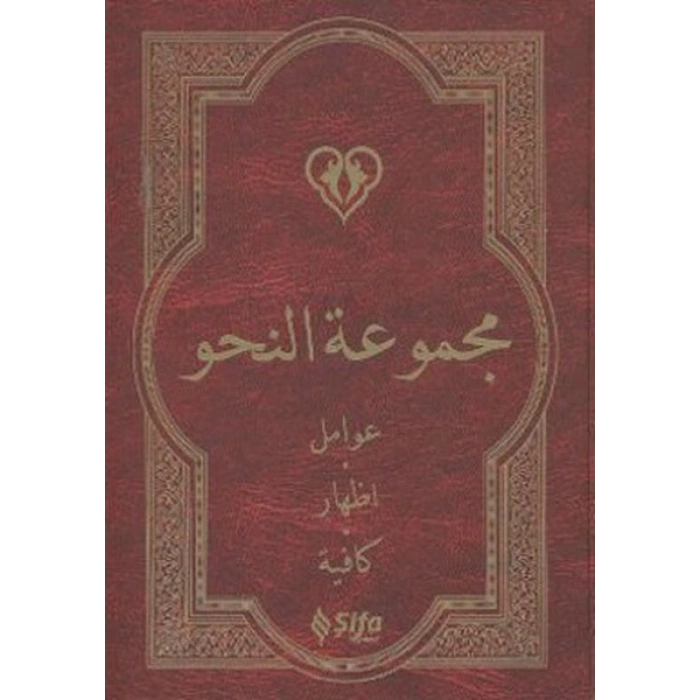 مجموعة النحو
عوامل
اظهار
كافية
Şifa